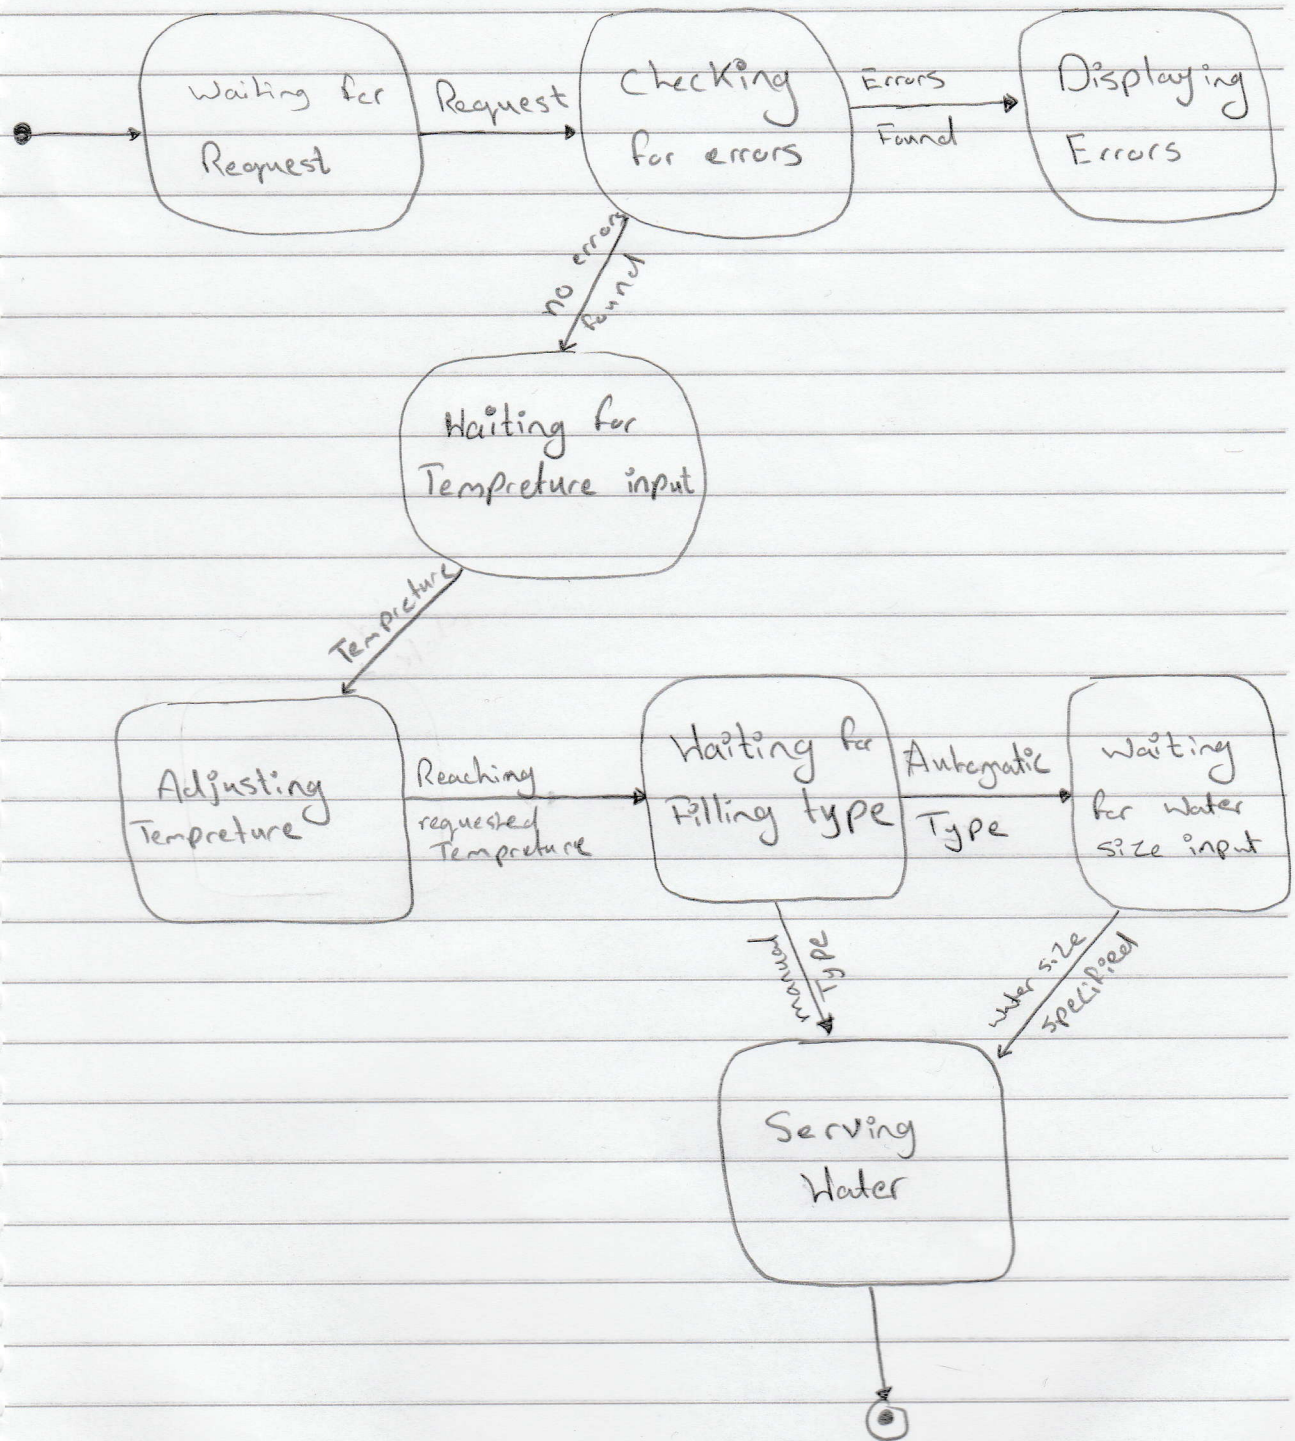 Waiting for
Request
Request
Checking
for errors
Errors
Found
Displaying
Errors
no errors
found
Waiting for
Tempreture input
Tempreture
Adjusting
Tempreture
Reaching
requested
Tempreture
Waiting for
Filling type
Automatic
Type
Waiting
for water
size input
manual
Type
water size
specified
Serving
Water